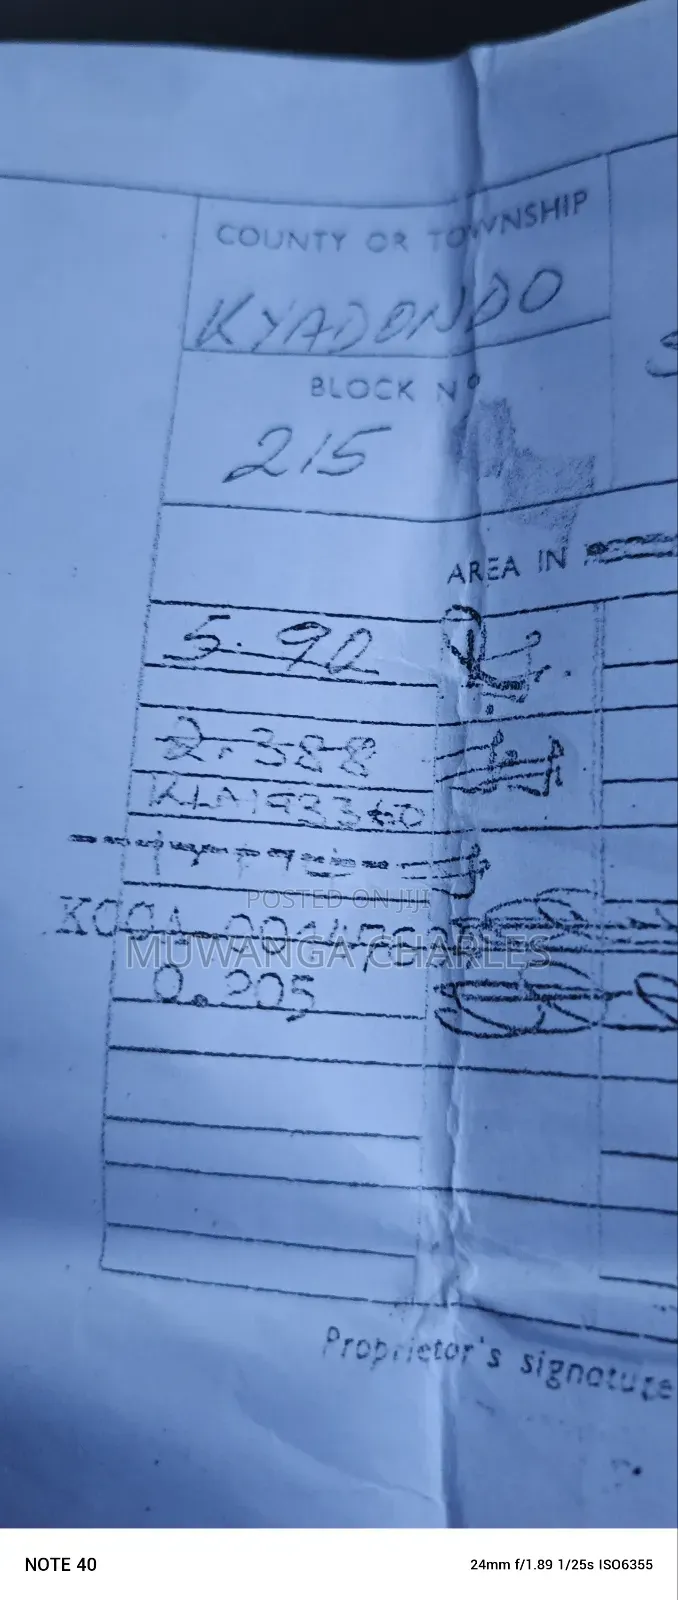 COUNTY OR TOWNSHIP
KYADONDO
BLOCK Nº
215
AREA IN
5.90
2.388
KLA193360
POSTED ON JIJI
MUWANGA CHARLES
0.205
Proprietor's signature
NOTE 40
24mm f/1.89 1/25s ISO6355